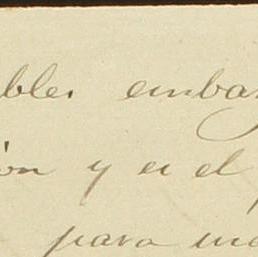 bles emba
ión y es el
para me